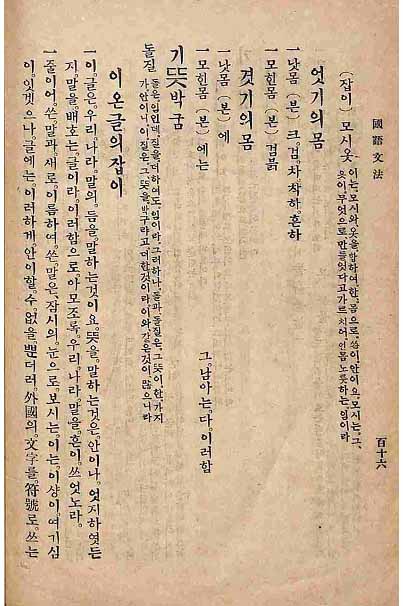 國語文法
百十六
(잡이) 모시옷 이는, 모시와, 옷을, 합하여, 한, 몸으로, 씀이 안이요, 모시는, 그,
옷이, 무엇으로, 만들엇다고, 가르치어, 언몸, 노릇하는, 임이라
엇기의몸
一낫몸 (본) 크, 검, 차, 착하, 흔하
一모힌몸 (본) 검붉
겻기의몸
一낫몸 (본) 에
一모힌몸 (본) 에는
그, 남아는, 다, 이러함
기뜻박굼
돌질 돌은, 임인데, 질을, 더하여도, 임이라, 그러하나, 돌과, 돌질은, 그, 뜻이, 한, 가지
가, 안이니, 이, 질은, 그, 뜻을, 박구랴고, 더한, 것이라, 이와, 같은, 것이, 많으니라
이온글의잡이
一이, 글은, 우리, 나라, 말의, 듬을, 말하는, 것이요, 뜻을, 말하는, 것은, 안이나, 엇지하엿든
지, 말을, 배호는, 글이라, 이러함으로, 아모조록, 우리, 나라, 말을, 흔이, 쓰엇노라,
一줄이어, 쓴, 말과, 새로, 이름하여, 쓴, 말은, 잠시의, 눈으로, 보시는, 이는, 이상이, 여기심
이, 잇겟으나, 글에는, 이러하게, 안이할, 수, 없을, 뿐더러, 外國의, 文字를, 符號로, 쓰는